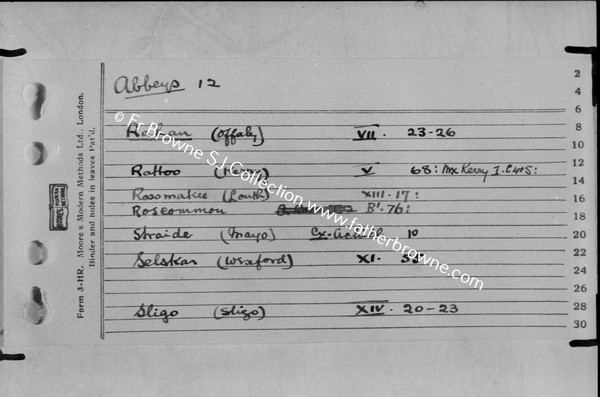 Abbeys 12
Rahan (Offaly) VII. 23-26
Rattoo (Kerry) V 68: Mx Kerry I. C4+5:
Rossmakee (Louth) XIII. 17:
Roscommon B'. 76:
Straide (Mayo) Cx. 10
Selskar (Wexford) XI.
Sligo (Sligo) XIV. 20-23
2
4
6
8
10
12
14
16
18
20
22
24
26
28
30
Form 3-HR. Moore's Modern Methods Ltd., London.
Binder and holes in leaves Pat'd.
© Fr Browne S.J. Collection www.fatherbrowne.com